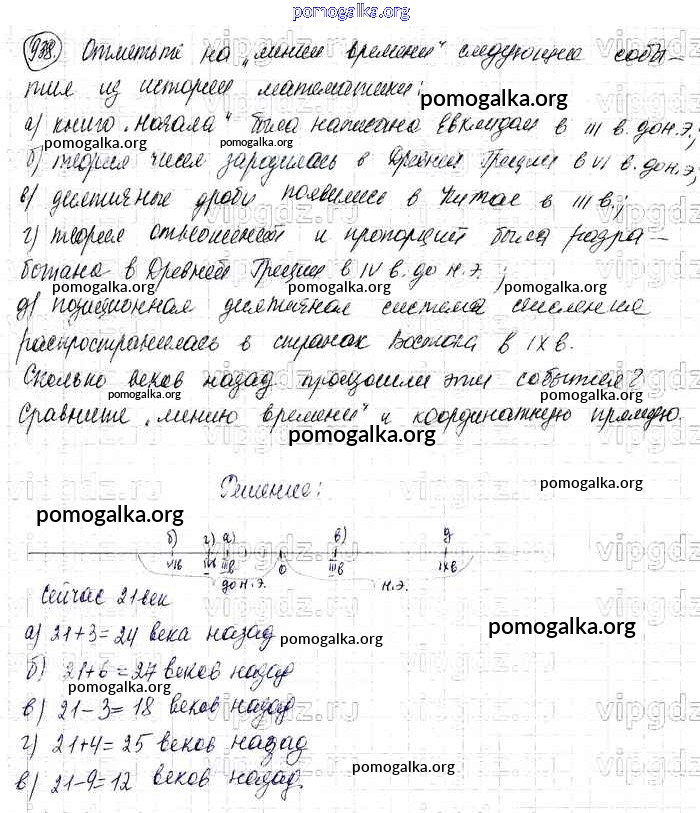 pomogalka.org
938. Отметьте на „линии времени" следующие собы-
тия из истории математики:
pomogalka.org
а) книга „Начала" была написана Евклидом в III в. до н.э.;
pomogalka.org pomogalka.org
б) теория чисел зародилась в Древней Греции в VI в. до н.э.;
в) десятичные дроби появились в Китае в III в.;
г) теория отношений и пропорций была разра-
ботана в Древней Греции в IV в. до н.э.;
pomogalka.org pomogalka.org pomogalka.org
д) позиционная десятичная система счисления
распространилась в странах Востока в IX в.
Сколько веков назад произошли эти события?
pomogalka.org pomogalka.org
Сравните „линию времени" и координатную прямую.
pomogalka.org
Решение:
pomogalka.org
pomogalka.org
б) г) а) в) д
VIв IVв IIIв 0 IIIв IXв
до н.э. н.э.
Сейчас 21 век
а) 21+3=24 века назад
pomogalka.org pomogalka.org
б) 21+6=27 веков назад
pomogalka.org
в) 21-3=18 веков назад
г) 21+4=25 веков назад
pomogalka.org
в) 21-9=12 веков назад.